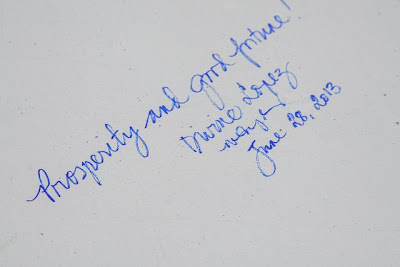 Prosperity and good fortune!
Divine Lopez
June 28, 2013